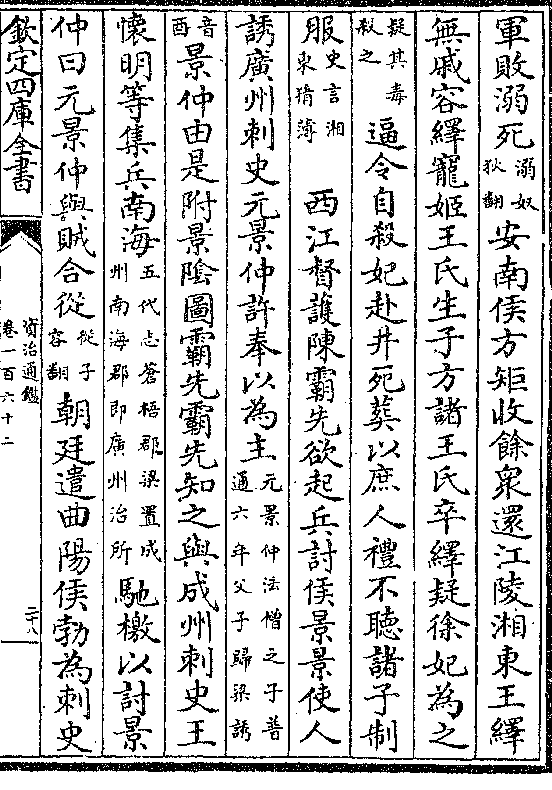 軍敗溺死溺奴狄翻安南侯方矩收餘衆還江陵湘東王繹
無戚容繹寵姬王氏生子方諸王氏卒繹疑徐妃為之
疑其毒殺之逼令自殺妃赴井死葬以庶人禮不聽諸子制
服史言湘東猜薄 西江督護陳霸先欲起兵討侯景景使人
誘廣州刺史元景仲許奉以為主元景仲法僧之子普通六年父子歸梁誘
音酉景仲由是附景陰圖霸先霸先知之與成州刺史王
懷明等集兵南海五代志蒼梧郡梁置成州南海郡即廣州治所馳檄以討景
仲曰元景仲與賊合從從子容翻朝廷遣曲陽侯勃為刺史
欽定四庫全書
資治通鑑
卷一百六十二
二十八